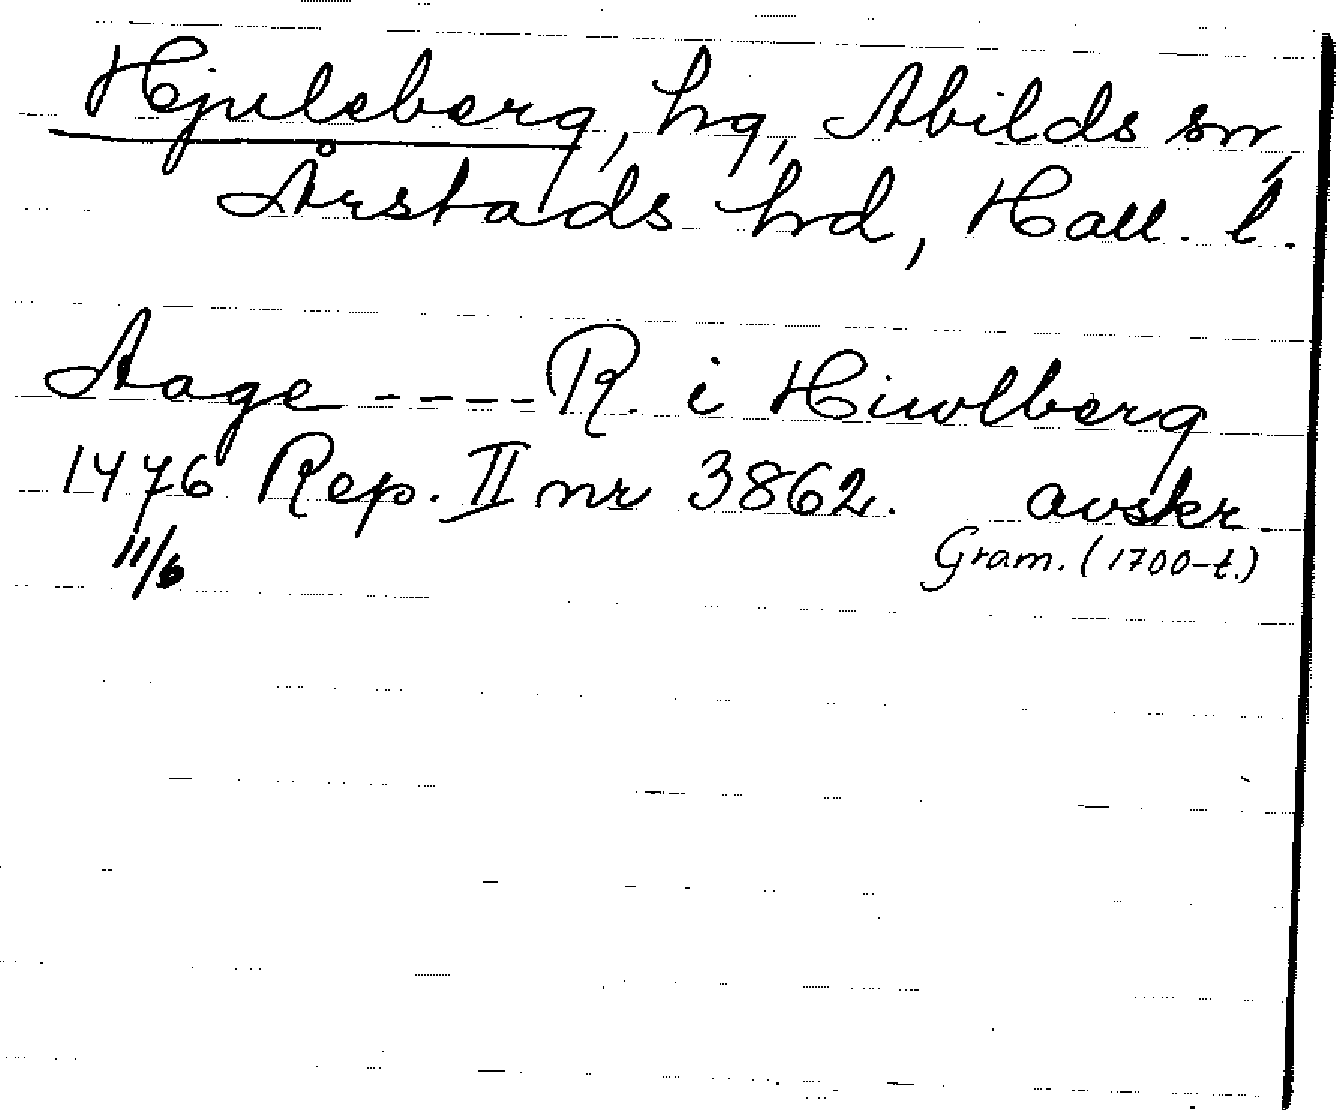 Hjuleberg, hg, Abilds sn,
Årstads hd, Hall. l.
Aage ----R. i Hiwlberg
1476 Rep. II nr 3862. avskr
11/6 Gram. (1700-t.)